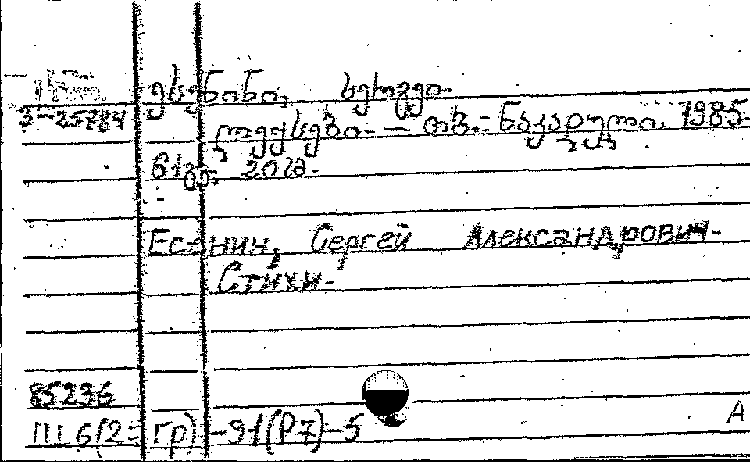 3-25784
ესენინი, სერგეი.
ლექსები. — თბ.: ნაკადული, 1985.
61გვ. 20სმ.
Есенин, Сергей Александрович.
Стихи.
85236
Ш6(2=гр)-91(Р7)-5
А